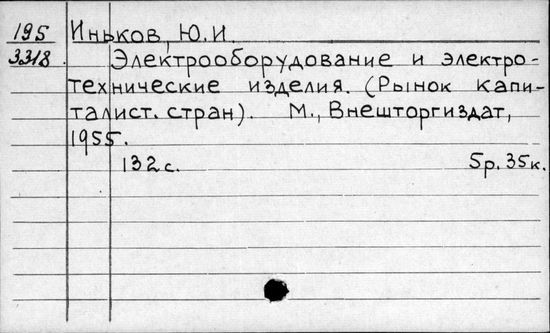 195 Иньков, Ю.И.
3318. Электрооборудование и электро-
технические изделия. (Рынок капи-
талист. стран). М., Внешторгиздат,
1955.
132 с. 5р. 35к.